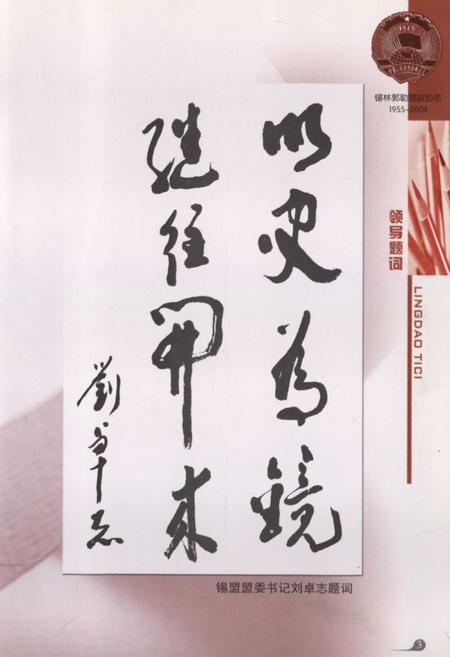 1949
锡林郭勒盟政协志
1955-2004
领导题词
LINGDAO TICI
以史为镜
继往開来
劉卓志
锡盟盟委书记刘卓志题词
3